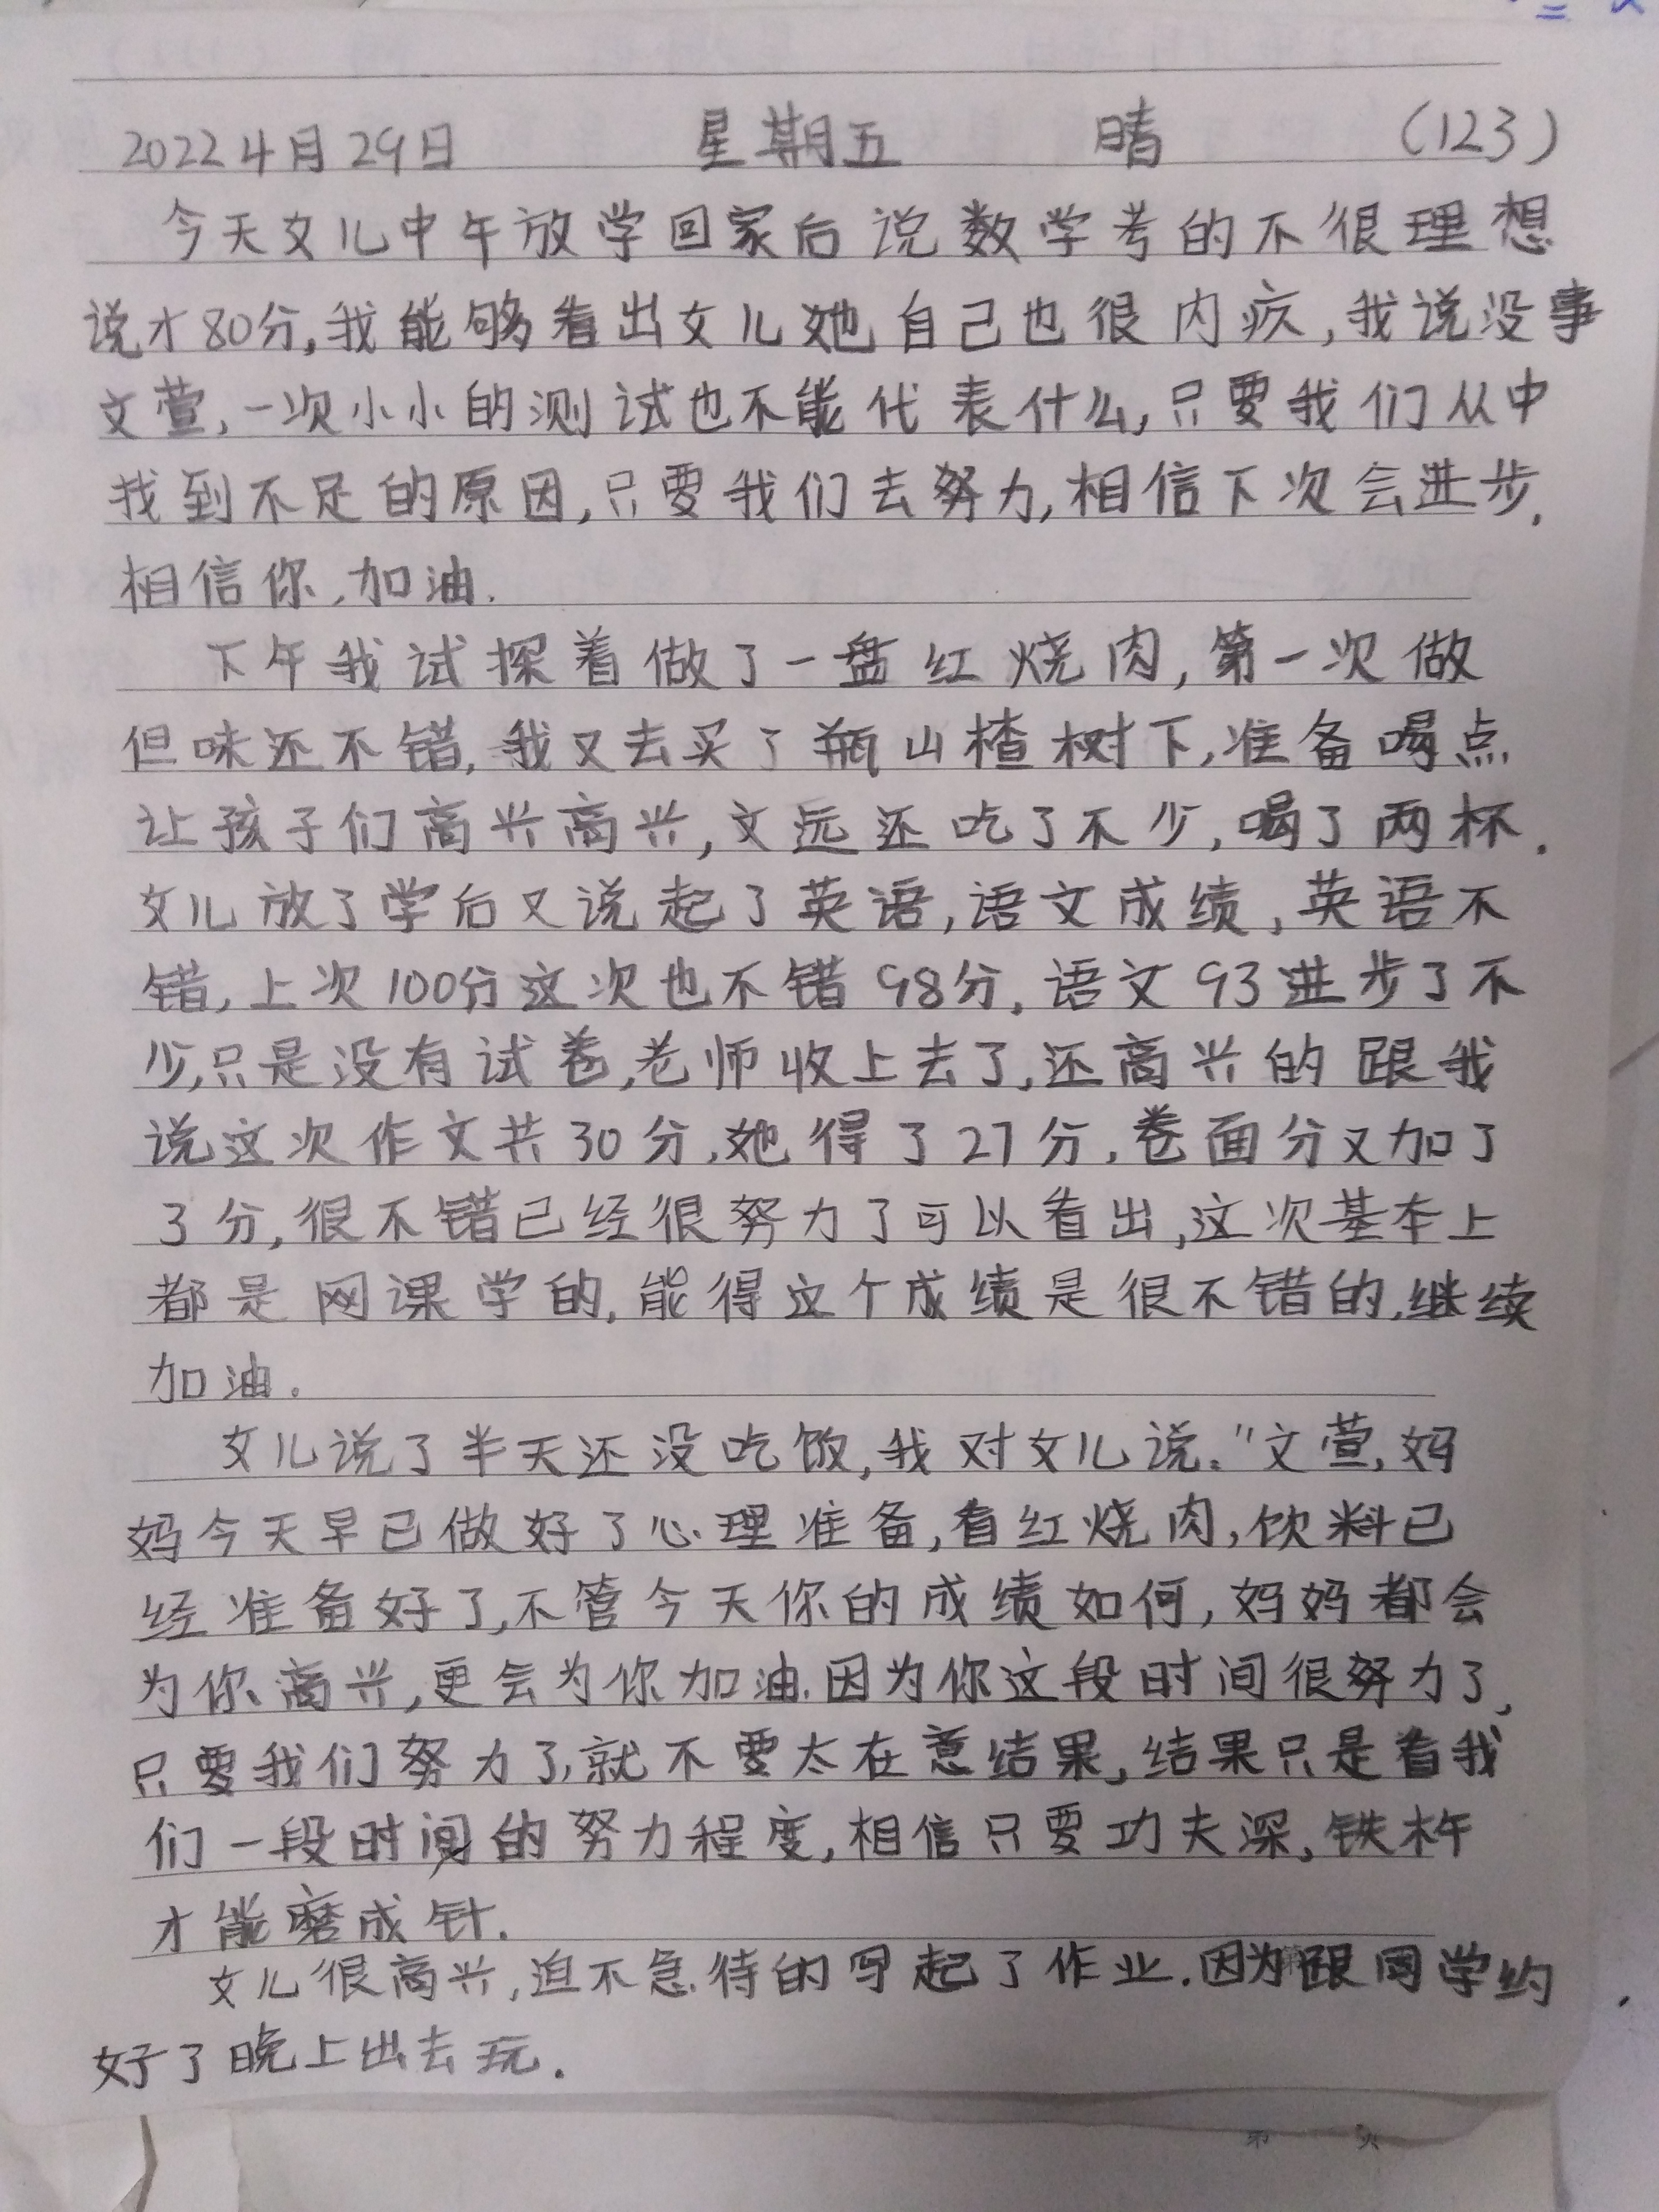 2022 4月29日 星期五 晴 (123)
今天女儿中午放学回家后说数学考的不很理想
说才80分,我能够看出女儿她自己也很内疚,我说没事
文萱,一次小小的测试也不能代表什么,只要我们从中
找到不足的原因,只要我们去努力,相信下次会进步,
相信你,加油.
下午我试探着做了一盘红烧肉,第一次做
但味还不错,我又去买了瓶山楂树下,准备喝点
让孩子们高兴高兴,文远还吃了不少,喝了两杯.
女儿放了学后又说起了英语,语文成绩,英语不
错,上次100分这次也不错98分,语文93进步了不
少,只是没有试卷,老师收上去了,还高兴的跟我
说这次作文共30分,她得了27分,卷面分又加了
3分,很不错已经很努力了可以看出,这次基本上
都是网课学的,能得这个成绩是很不错的,继续
加油。
女儿说了半天还没吃饭,我对女儿说。"文萱,妈
妈今天早已做好了心理准备,看红烧肉,饮料已
经准备好了,不管今天你的成绩如何,妈妈都会
为你高兴,更会为你加油.因为你这段时间很努力了,
只要我们努力了,就不要太在意结果,结果只是看我
们一段时间的努力程度,相信只要功夫深,铁杵
才能磨成针.
女儿很高兴,迫不急待的写起了作业.因为跟同学约
好了晚上出去玩.
第 页